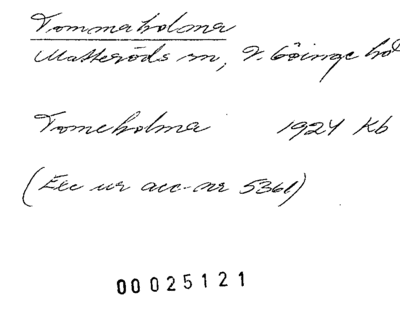 Tommaholma
Matteröds sn, V. Göinge hd
Tomeholma 1924 Kb
(Exc ur acc-nr 5361)
00025121